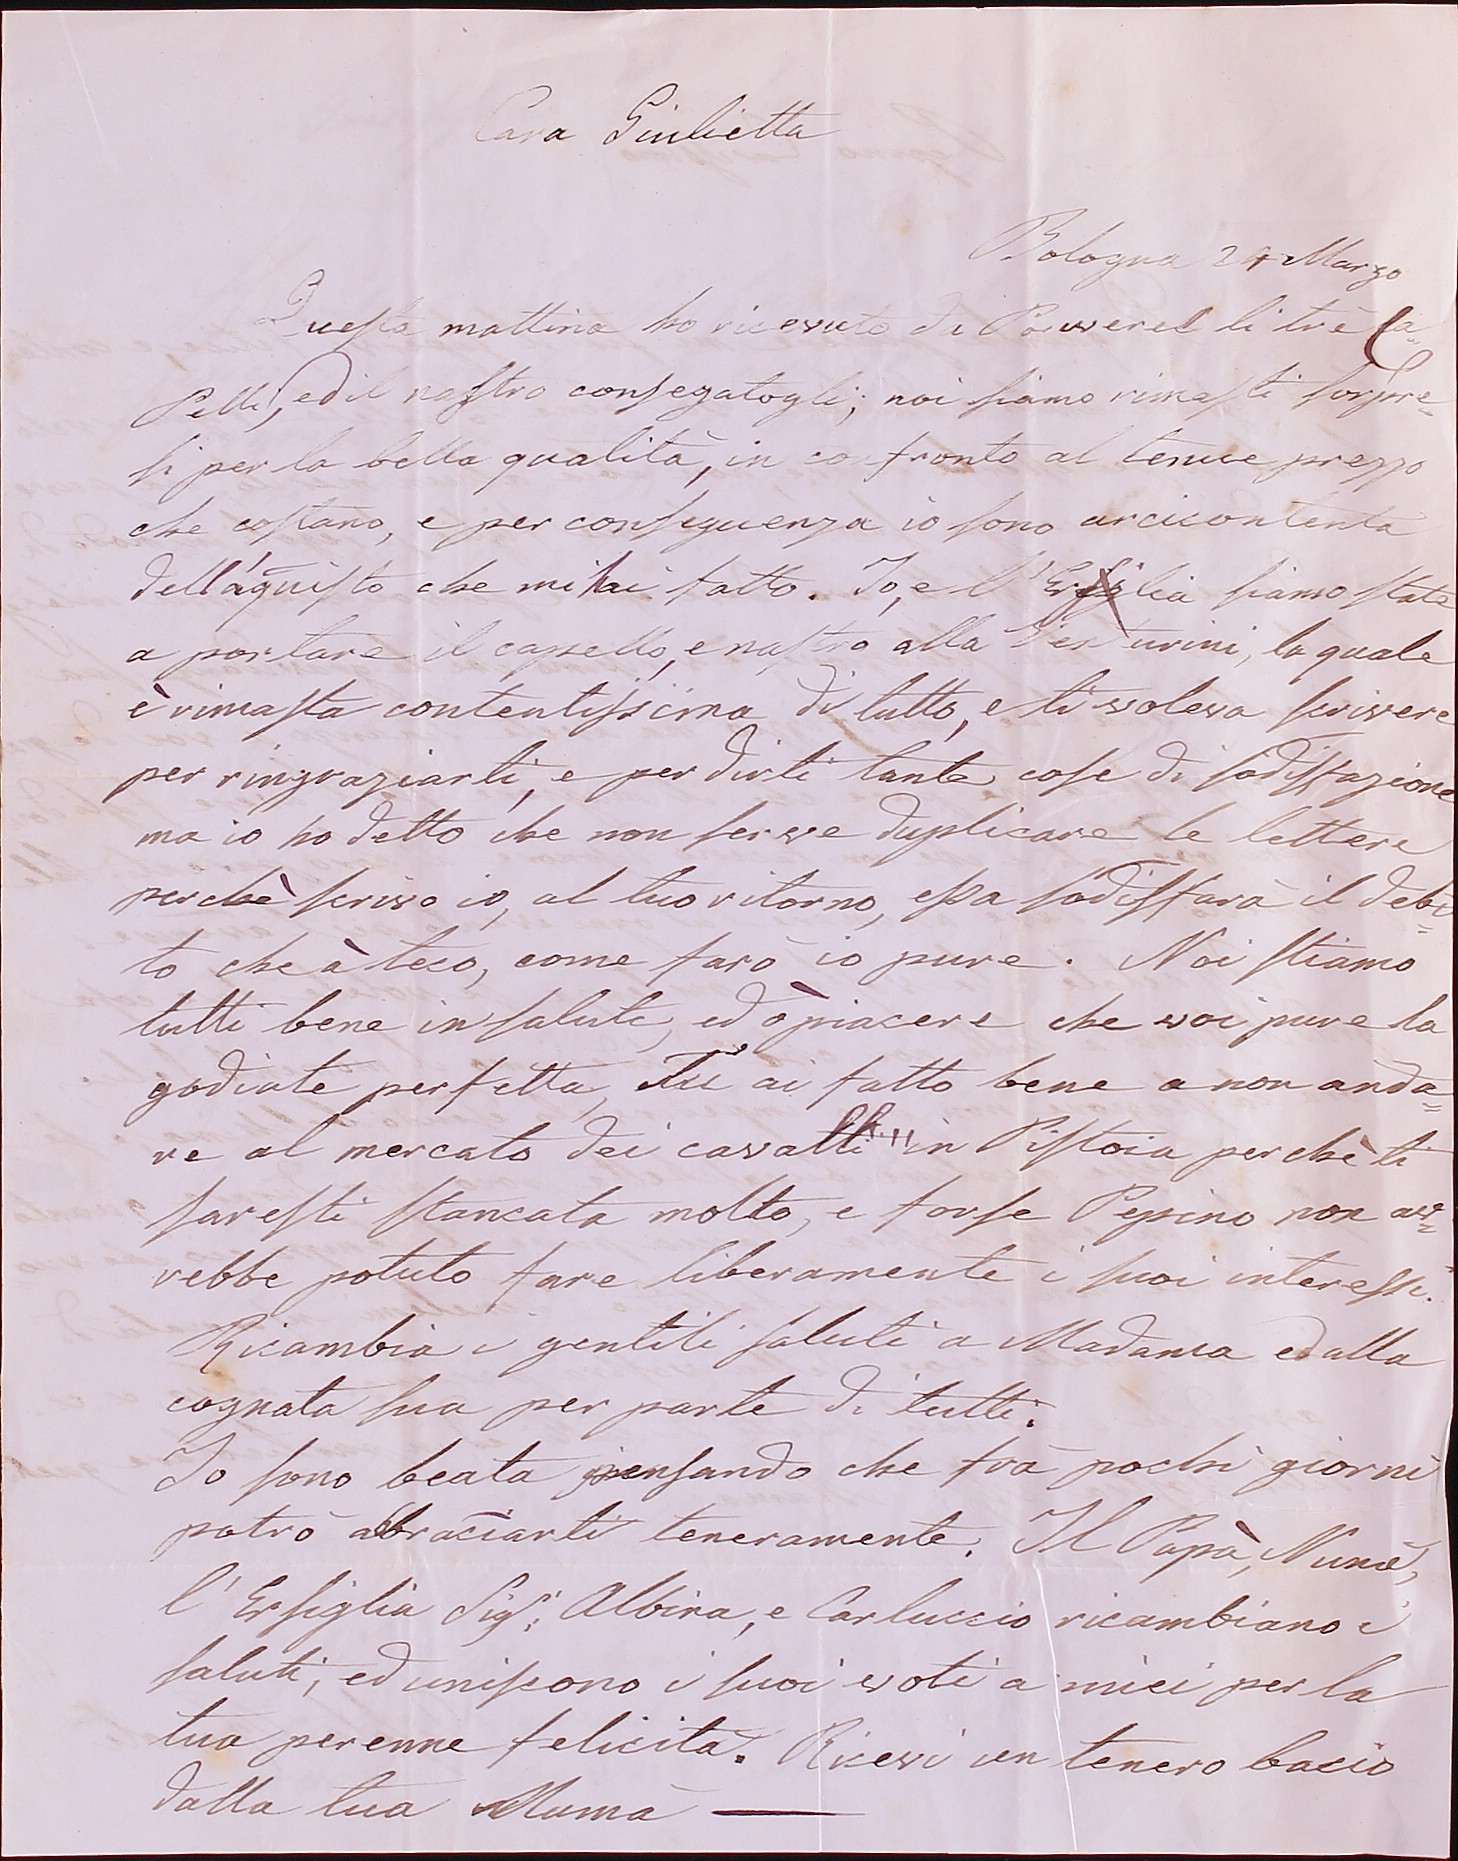 Cara Giulietta
Bologna 24 Marzo
Questa mattina ho ricevuto da li trè Ca=
pelli, ed il nastro consegatogli; noi siamo rimasti sorpre=
si per la bella qualità, in confronto al tenue prezzo
che costano, e per conseguenza io sono arcicontenta
dell'aquisto che mi hai fatto. Io, e l'Ersiglia siamo state
a portare il capello, e nastro alla Venturini, la quale
è rimasta contentissima di tutto, e ti voleva scrivere
per ringraziarti, e per dirti tante cose di sodisfazione
ma io ho detto che non serve duplicare le lettere
perchè scrivo io, al tuo ritorno, essa sodisfarà il debi=
to che à teco, come farò io pure. Noi stiamo
tutti bene in salute, ed ò piacere che voi pure la
godiate perfetta, Tu ai fatto bene a non anda=
re al mercato dei cavalli in Pistoia perchè ti
saresti stancata molto, e forse Pepino non av=
rebbe potuto fare liberamente i suoi interessi.
Ricambia i gentili saluti a Madama ed alla
cognata sua per parte di tutti.
Io sono beata pensando che frà pochi giorni
potrò abraciarti teneramente. Il Papà, Nunè,
l'Ersiglia Sig.ª Albina, e Carluccio ricambiano i
saluti, ed uniscono i suoi voti a miei per la
tua perenne felicità. Ricevi un tenero bacio
dalla tua Mamà